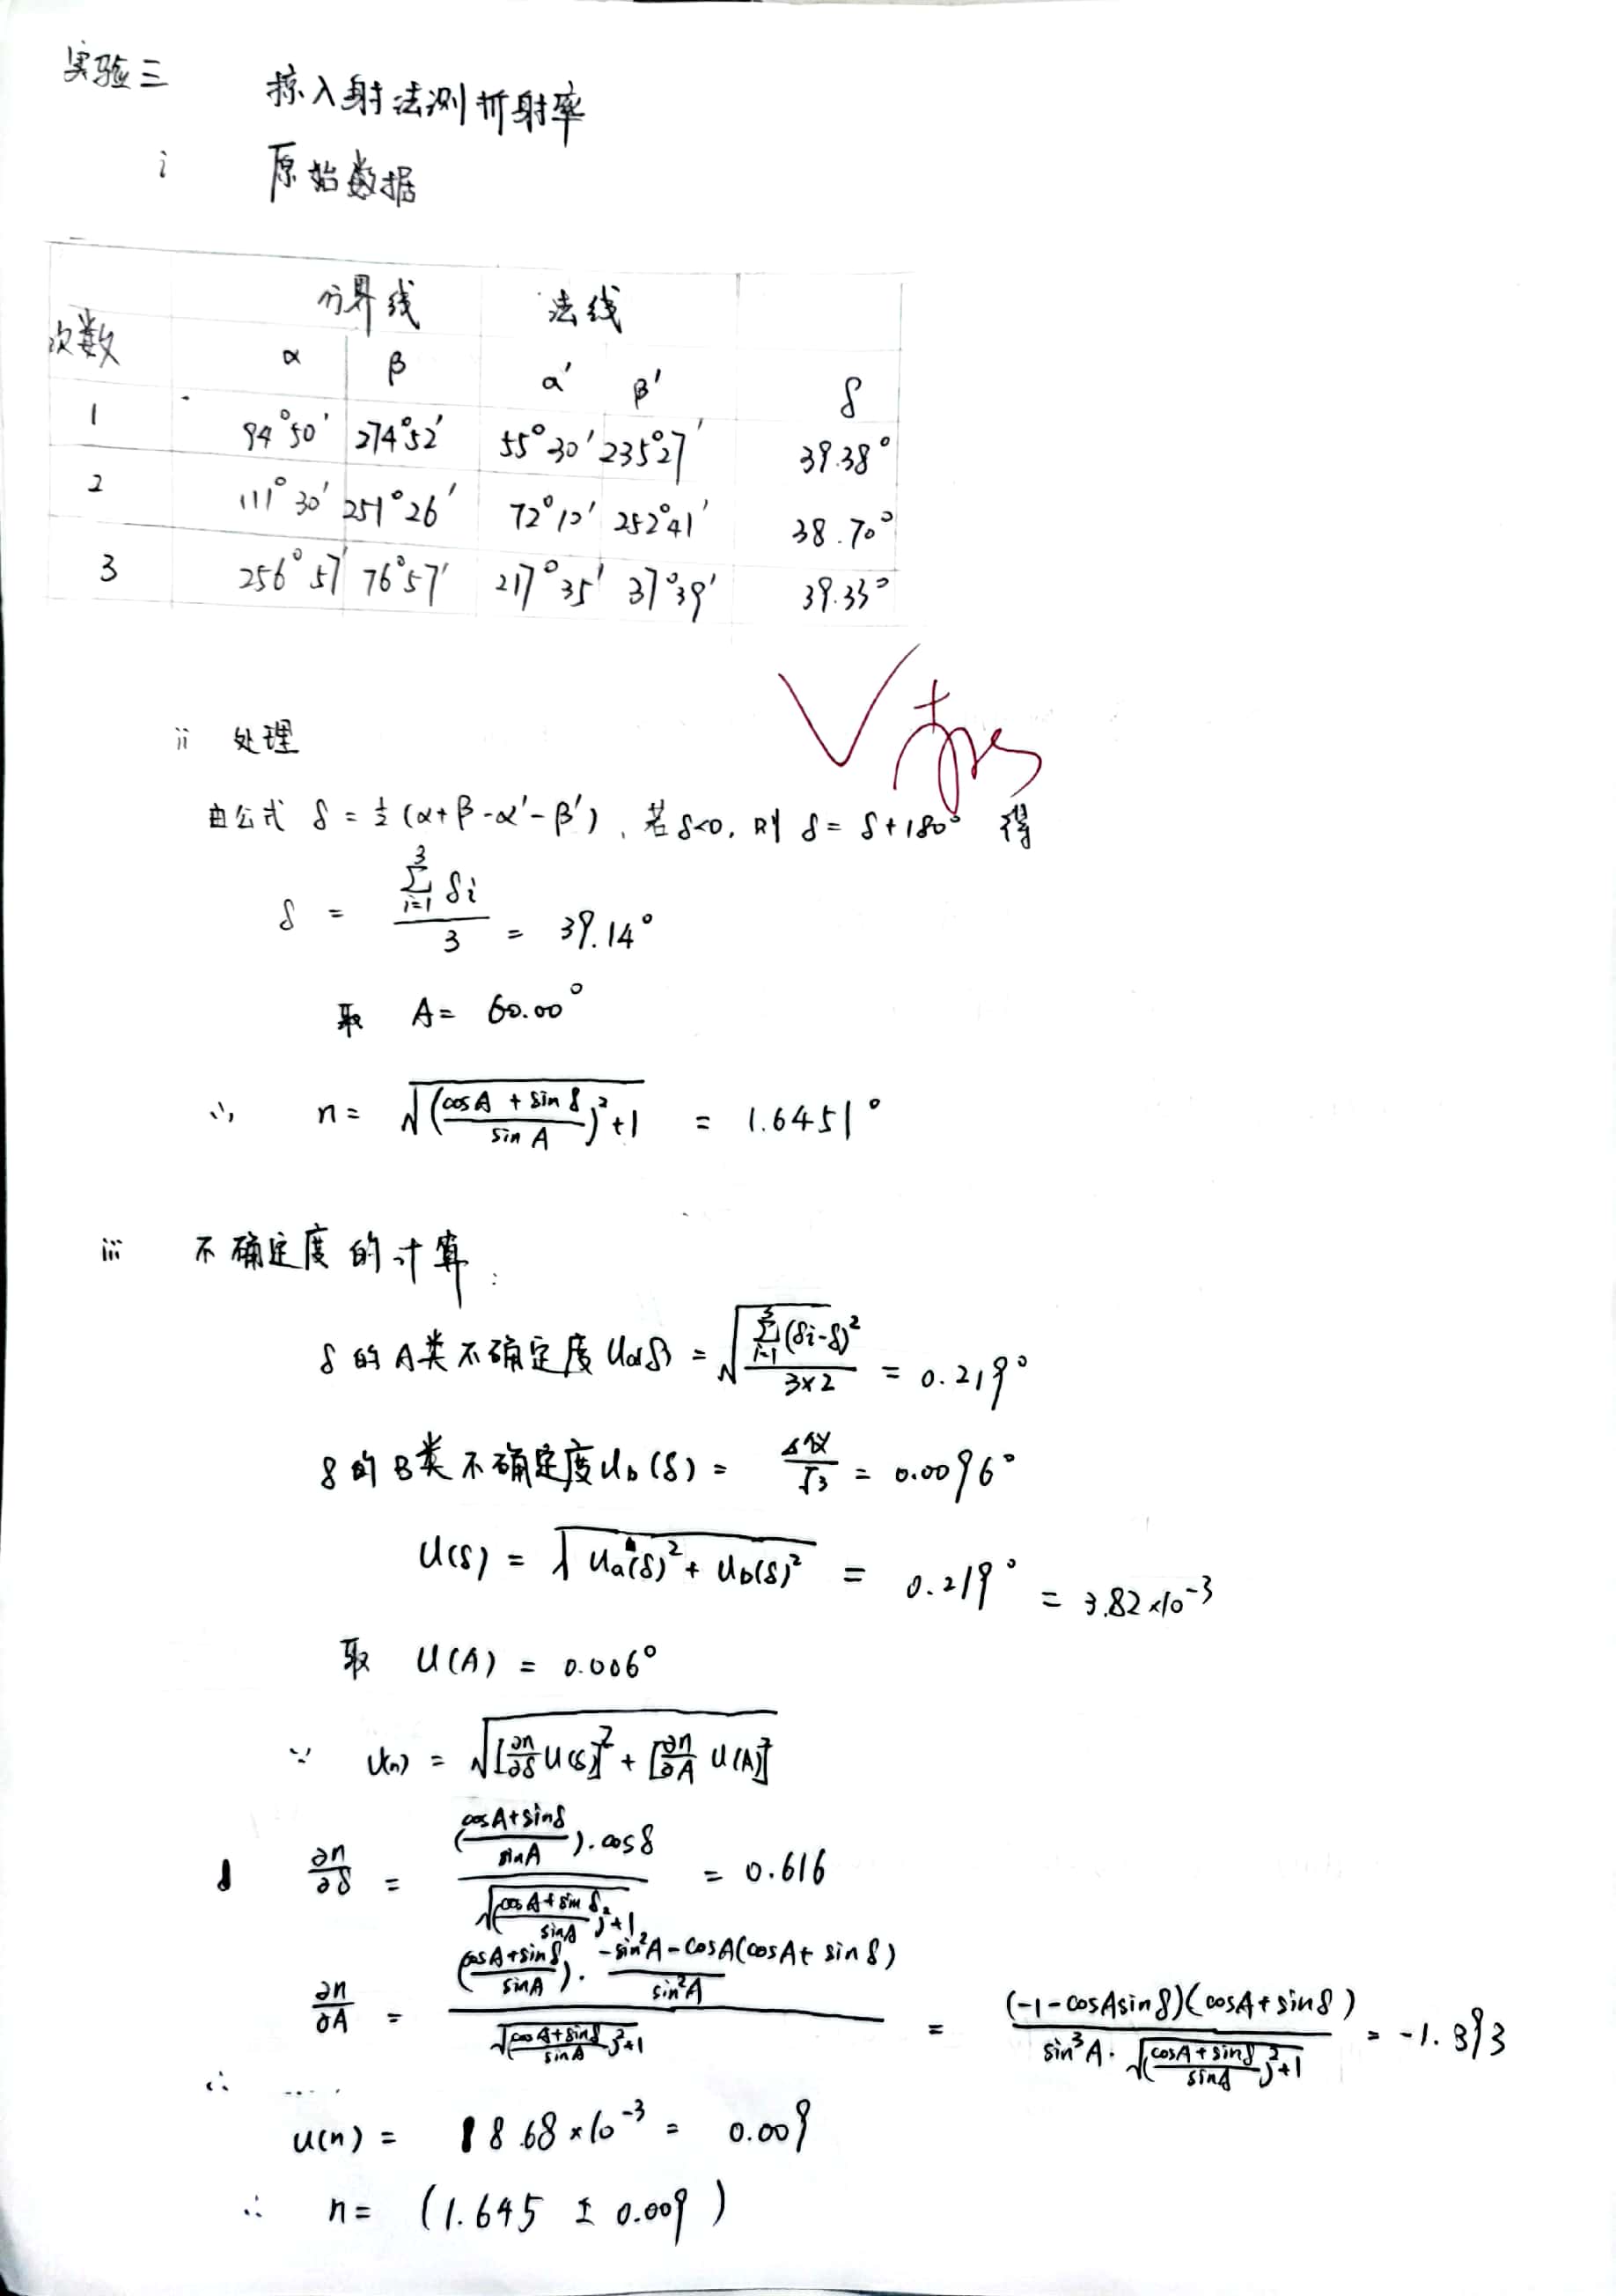 实验三
掠入射法测折射率
i 原始数据
次数 分界线 法线
α β α′ β′ δ
1 94°50′ 274°52′ 55°30′ 235°27′ 39.38°
2 111°30′ 251°26′ 72°12′ 252°41′ 38.70°
3 256°57′ 76°57′ 217°35′ 37°39′ 39.33°
ii 处理
由公式 δ = ½ (α+β-α′-β′), 若δ<0, 则 δ = δ+180° 得
δ = \frac{\sum_{i=1}^{3} δi}{3} = 39.14°
取 A = 60.00°
∴ n = \sqrt{(\frac{cosA + sinδ}{sinA})^2+1} = 1.6451°
iii 不确定度的计算:
δ的A类不确定度Ua(δ) = \sqrt{\frac{\sum_{i=1}^{3}(δi-δ)^2}{3×2}} = 0.219°
δ的B类不确定度Ub(δ) = \frac{Δ仪}{\sqrt{3}} = 0.0096°
U(δ) = \sqrt{Ua(δ)^2 + Ub(δ)^2} = 0.219° = 3.82×10^{-3}
取 U(A) = 0.006°
∵ U(n) = \sqrt{[\frac{∂n}{∂δ}U(δ)]^2 + [\frac{∂n}{∂A}U(A)]^2}
\frac{∂n}{∂δ} = \frac{(\frac{cosA+sinδ}{sinA})·cosδ}{\sqrt{(\frac{cosA+sinδ}{sinA})^2+1}} = 0.616
\frac{∂n}{∂A} = \frac{(\frac{cosA+sinδ}{sinA})·\frac{-sin^2A-cosA(cosA+sinδ)}{sin^2A}}{\sqrt{(\frac{cosA+sinδ}{sinA})^2+1}} = \frac{(-1-cosAsinδ)(cosA+sinδ)}{sin^3A·\sqrt{(\frac{cosA+sinδ}{sinA})^2+1}} = -1.893
∴ ......
u(n) = 8.68×10^{-3} = 0.009
∴ n = (1.645 ± 0.009)